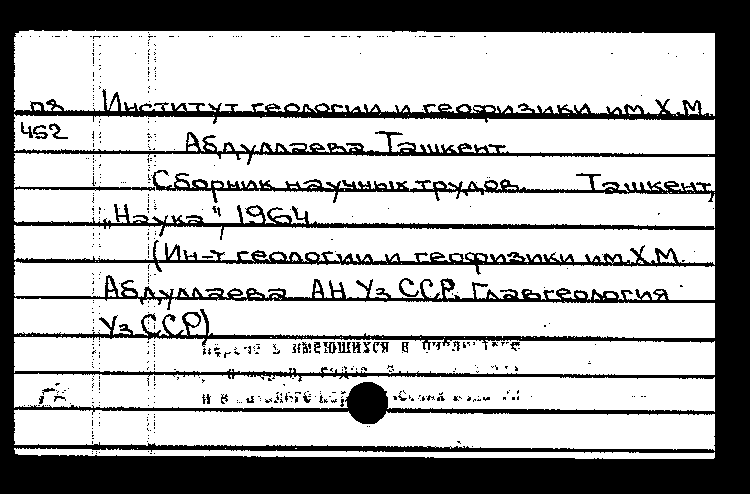 п8 Институт геологии и геофизики им. Х.М.
452
Абдуллаева. Ташкент.
Сборник научных трудов. Ташкент,
„Наука", 1964
(Ин-т геологии и геофизики им. Х.М.
Абдуллаева АН УзССР. Главгеология
УзССР)
имеющихся в библиотеке
и в каталоге